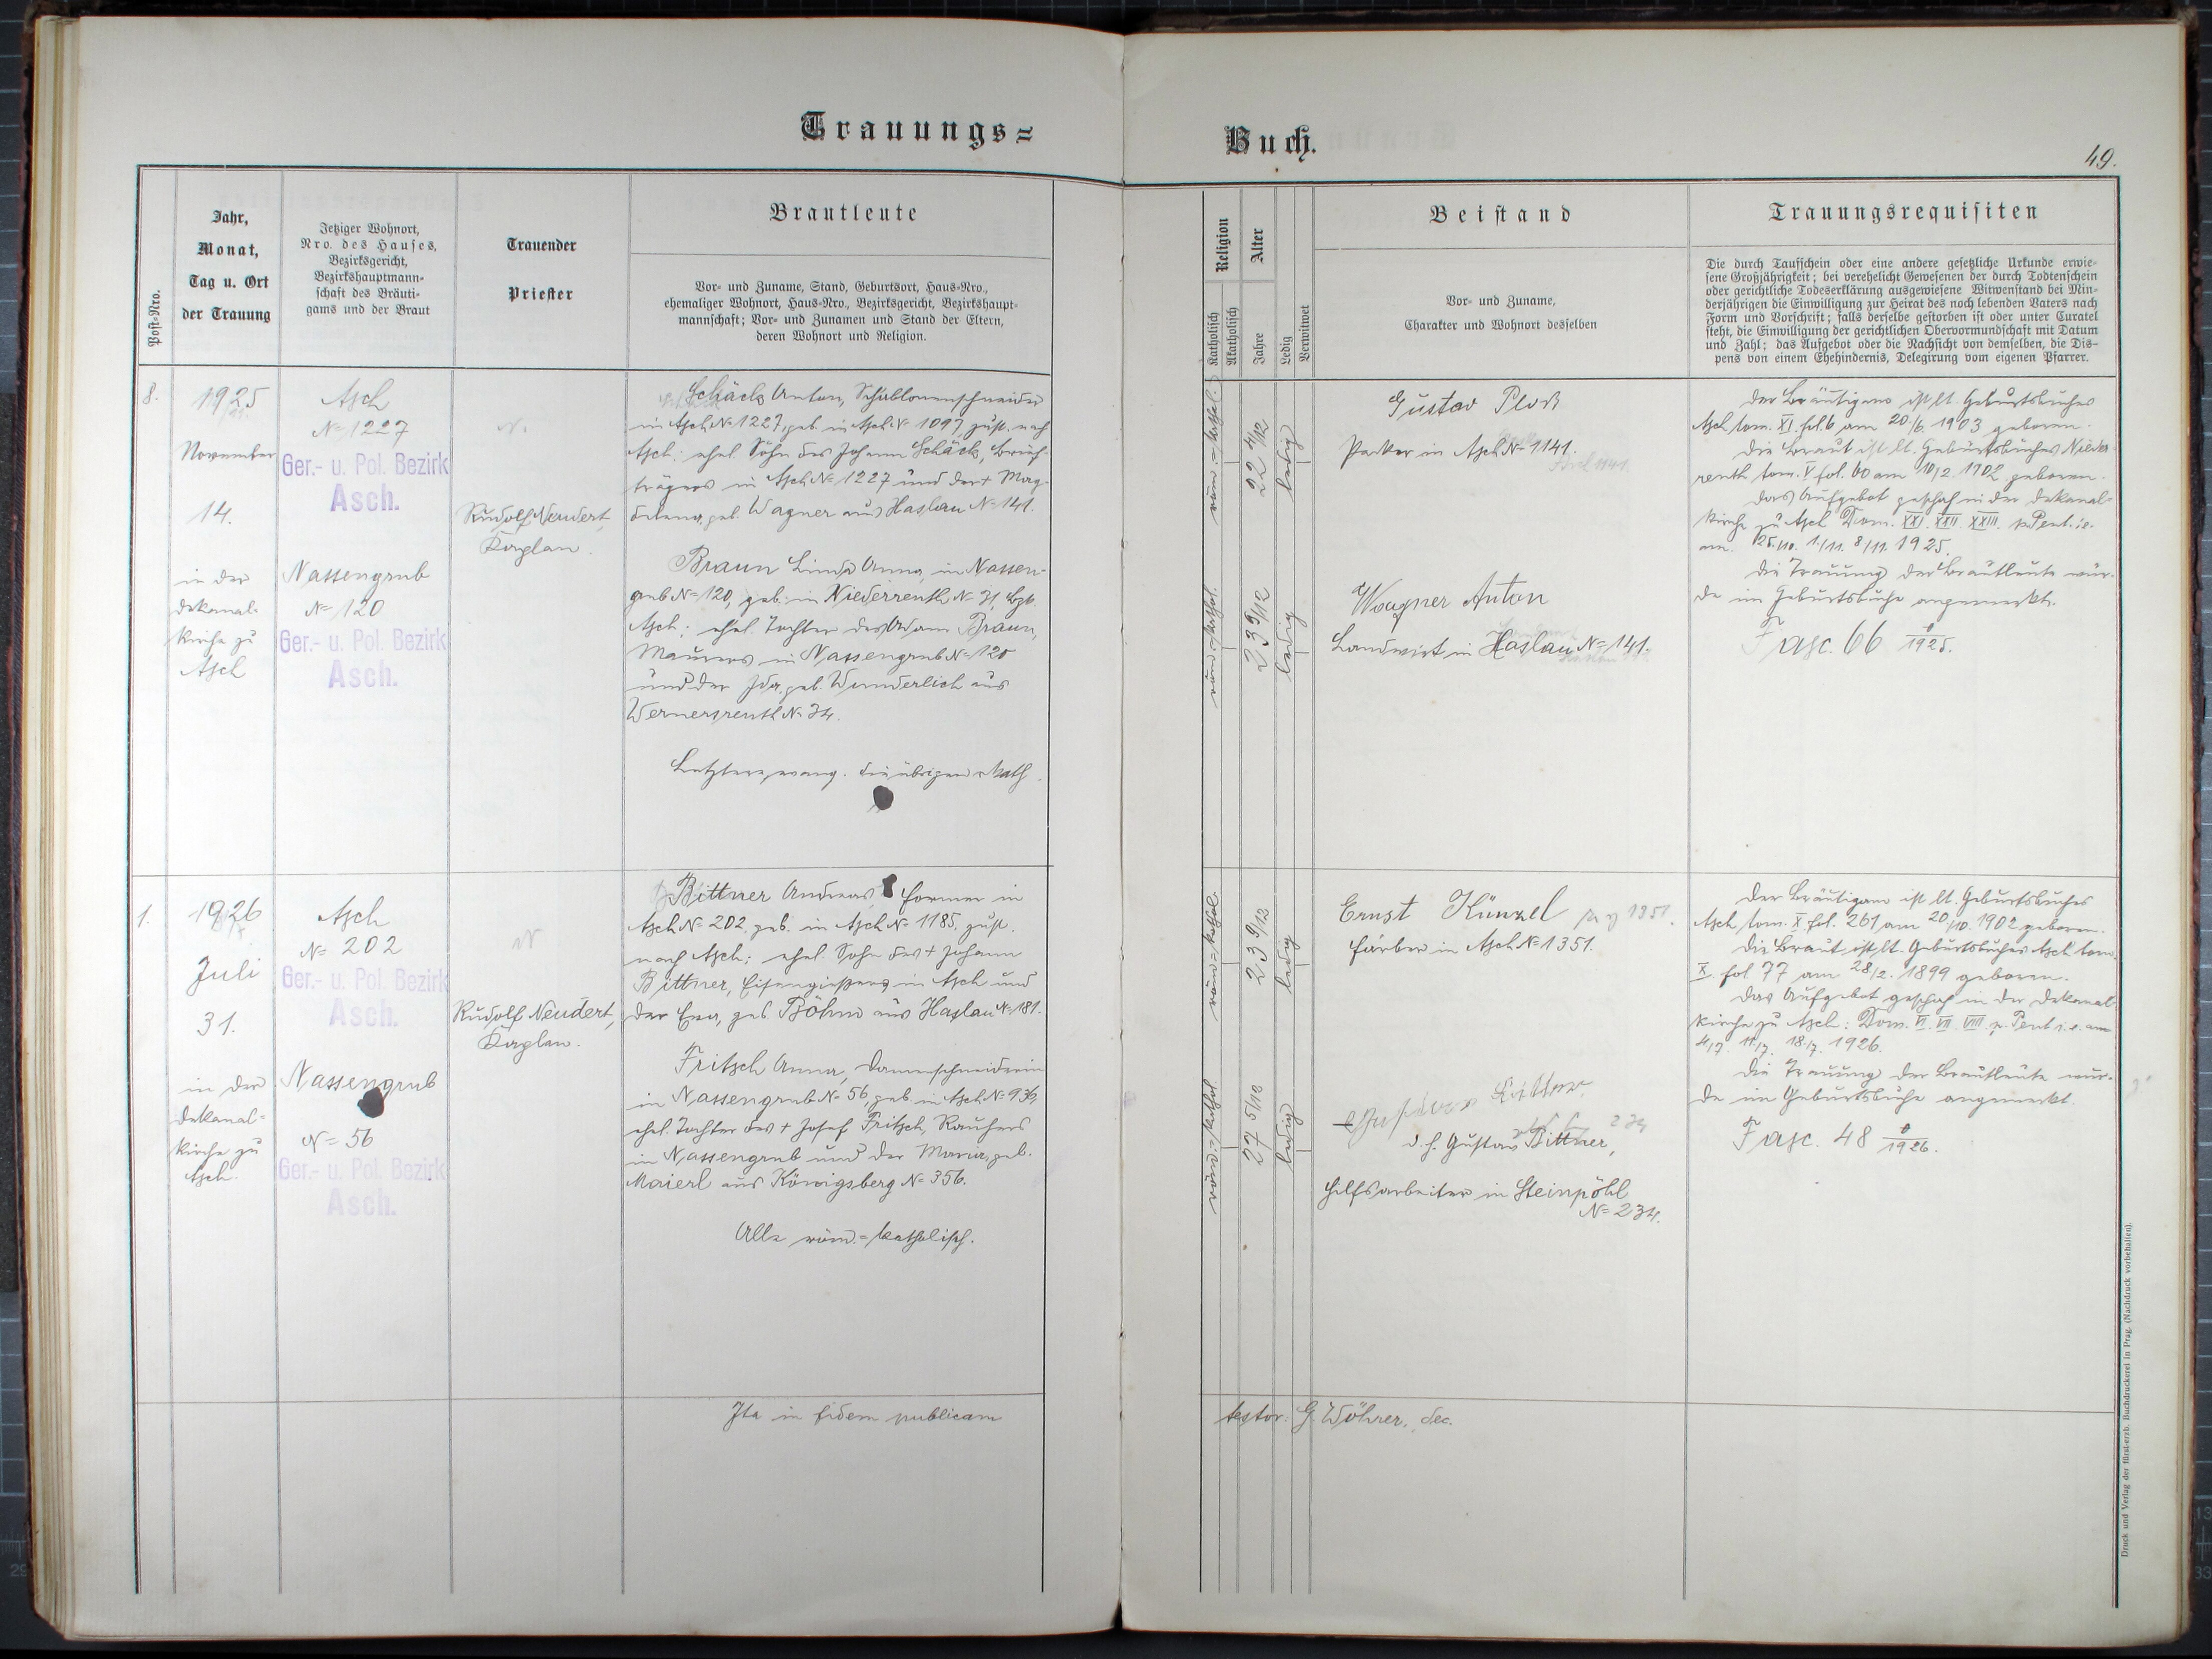 Trauungs=
Buch.
49.
Post-Nro.
Jahr,
Monat,
Tag u. Ort
der Trauung
Jetziger Wohnort,
Nro. des Hauses,
Bezirksgericht,
Bezirkshauptmann-
schaft des Bräuti-
gams und der Braut
Trauender
Priester
Brautleute
Vor- und Zuname, Stand, Geburtsort, Haus-Nro.,
ehemaliger Wohnort, Haus-Nro., Bezirksgericht, Bezirkshaupt-
mannschaft; Vor- und Zunamen und Stand der Eltern,
deren Wohnort und Religion.
Religion
Katholisch
Akatholisch
Alter
Jahre
Ledig
Verwitwet
Beistand
Vor- und Zuname,
Charakter und Wohnort desselben
Trauungsrequisiten
Die durch Taufschein oder eine andere gesetzliche Urkunde erwie-
sene Großjährigkeit; bei verehelicht Gewesenen der durch Todtenschein
oder gerichtliche Todeserklärung ausgewiesene Witwenstand bei Min-
derjährigen die Einwilligung zur Heirat des noch lebenden Vaters nach
Form und Vorschrift; falls derselbe gestorben ist oder unter Curatel
steht, die Einwilligung der gerichtlichen Obervormundschaft mit Datum
und Zahl; das Aufgebot oder die Nachsicht von demselben, die Dis-
pens von einem Ehehindernis, Delegirung vom eigenen Pfarrer.
8.
1925
November
14.
in der
Dekanal-
kirche zu
Asch
Asch
№ 1227
Ger.- u. Pol. Bezirk
Asch.
Nassengrub
№ 120
Ger.- u. Pol. Bezirk
Asch.
Rudolf Neudert,
Kaplan.
Schäck Anton, Schablonenschneider
in Asch № 1227, geb. in Asch № 1097, zust. nach
Asch; ehel. Sohn des Johann Schäck, Brief-
trägers in Asch № 1227 und der + Mag-
dalena, geb. Wagner aus Haslau № 141.
Braun Linda Anna, in Nassen-
grub № 120, geb. in Niederreuth № 31, Bzk.
Asch; ehel. Tochter des Adam Braun,
Maurers in Nassengrub № 120
und der Ida, geb. Wunderlich aus
Wernersreuth № 34.
Letztere evang. die übrigen kath.
röm.-kathol.
22 4/12
ledig
röm.-kathol.
23 9/12
ledig
Gustav Ploß
Packer in Asch № 1141.
Wagner Anton
Landwirt in Haslau № 141.
Der Bräutigam ist lt. Geburtsbuches
Asch tom. XI. fol. 6 am 20/6. 1903 geboren.
Die Braut ist lt. Geburtsbuches Nieder-
reuth tom. V fol. 60 am 10/2. 1902 geboren.
Das Aufgebot geschah in der Dekanal-
kirche zu Asch Dom. XXI. XXII. XXIII. p. Pent. i.e.
am 25./10. 1./11. 8/11. 1925.
Die Trauung der Brautleute wur-
de im Geburtsbuche angemerkt.
Fasc. 66 1925.
1.
1926
Juli
31.
in der
Dekanal-
kirche zu
Asch.
Asch
№ 202
Ger.- u. Pol. Bezirk
Asch.
Nassengrub
№ 56
Ger.- u. Pol. Bezirk
Asch.
Rudolf Neudert,
Kaplan.
Bittner Andreas, Former in
Asch № 202, geb. in Asch № 1185, zust.
nach Asch; ehel. Sohn des + Johann
Bittner, Eisengießers in Asch und
der Eva, geb. Böhm aus Haslau № 181.
Fritsch Anna, Damenschneiderin
in Nassengrub № 56, geb. in Asch № 936,
ehel. Tochter des + Josef Fritsch, Rauhers
in Nassengrub und der Maria, geb.
Maierl aus Königsberg № 356.
Alle röm.-katholisch.
röm.-kathol.
23 9/12
ledig
röm.-kathol.
27 5/12
ledig
Ernst Künzel 1351.
Färber in Asch № 1351.
Gustav Bittner
234
d. h. Gustav Bittner,
Hilfsarbeiter in Steinpöhl
№ 234.
Der Bräutigam ist lt. Geburtsbuches
Asch tom. X fol. 261 am 20/10. 1902 geboren.
Die Braut ist lt. Geburtsbuches Asch tom.
X. fol 77 am 28/2. 1899 geboren.
Das Aufgebot geschah in der Dekanal-
kirche zu Asch: Dom. VI. VII. VIII. p. Pent i.e. am
4/7. 11/7. 18./7. 1926.
Die Trauung der Brautleute wur-
de im Geburtsbuche angemerkt.
Fasc. 48 1926.
Ita in fidem publicam
testor: G. Wöhrer, dec.
Druck und Verlag der fürst-erzb. Buchdruckerei in Prag. (Nachdruck vorbehalten).